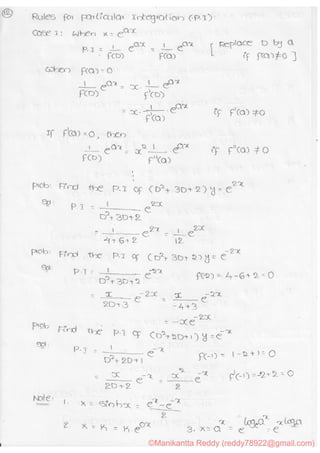 Rules for particular Integration (P.I):
Case 1: When x = e^ax
P.I = 1/f(D) e^ax = 1/f(a) e^ax [Replace D by a if f(a) ≠ 0]
When f(a) = 0
1/f(D) e^ax = x. 1/f'(D) e^ax
= x. 1/f'(a) e^ax if f'(a) ≠ 0
If f'(a) = 0, then
1/f(D) e^ax = x² 1/f''(a) e^ax if f''(a) ≠ 0
⋮
Prob: Find the P.I of (D²+3D+2) y = e^2x
Sol: P.I = 1/(D²+3D+2) e^2x
= 1/(4+6+2) e^2x = 1/12 e^2x
Prob: Find the P.I of (D²+3D+2) y = e^-2x
Sol: P.I = 1/(D²+3D+2) e^-2x f(2) = 4-6+2 = 0
= x/(2D+3) e^-2x = x/(-4+3) e^-2x
= -x e^-2x
Prob: Find the P.I of (D²+2D+1) y = e^-x
Sol: P.I = 1/(D²+2D+1) e^-x f(-1) = 1-2+1 = 0
= x/(2D+2) e^-x = x²/2 e^-x f'(-1) = -2+2 = 0
Note: 1. x = sinhx = (e^x - e^-x)/2
2. x = K = K e^0x 3. x = a^x = e^(log a^x) = e^(x log a)
©Manikantta Reddy (reddy78922@gmail.com)